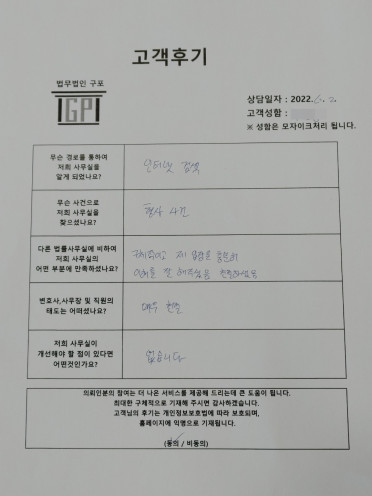 고객후기
법무법인 구포
GP
상담일자 : 2022.6.2.
고객성함 :
※ 성함은 모자이크처리 됩니다.
무슨 경로를 통하여
저희 사무실을
알게 되었나요?
인터넷 검색
무슨 사건으로
저희 사무실을
찾으셨나요?
형사 사건
다른 법률사무실에 비하여
저희 사무실의
어떤 부분에 만족하셨나요?
제 입장을 충분히
이해를 잘 해주셨음
변호사,사무장 및 직원의
태도는 어떠셨나요?
매우 친절
저희 사무실이
개선해야 할 점이 있다면
어떤것인가요?
없습니다
의뢰인분의 참여는 더 나은 서비스를 제공해 드리는데 큰 도움이 됩니다.
최대한 구체적으로 기재해 주시면 감사하겠습니다.
고객님의 후기는 개인정보보호법에 따라 보호되며,
홈페이지에 익명으로 기재됩니다.
(동의 / 비동의)